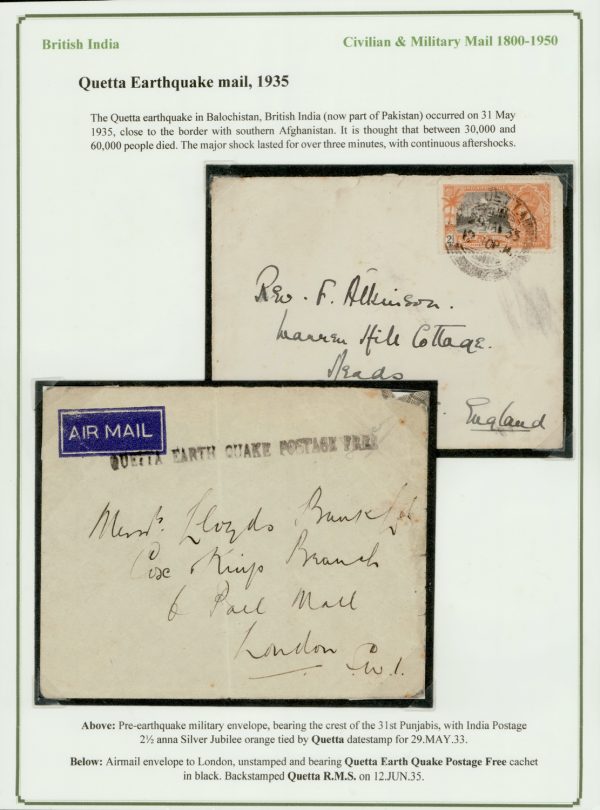 British India
Civilian & Military Mail 1800-1950
Quetta Earthquake mail, 1935
The Quetta earthquake in Balochistan, British India (now part of Pakistan) occurred on 31 May
1935, close to the border with southern Afghanistan. It is thought that between 30,000 and
60,000 people died. The major shock lasted for over three minutes, with continuous aftershocks.
Rev. F. Atkinson.
Warren Hill Cottage.
England
AIR MAIL
QUETTA EARTH QUAKE POSTAGE FREE
Messrs. Lloyds Bank Ltd
Cox & Kings Branch
6 Pall Mall
London
S.W.1.
Above: Pre-earthquake military envelope, bearing the crest of the 31st Punjabis, with India Postage
2½ anna Silver Jubilee orange tied by Quetta datestamp for 29.MAY.33.
Below: Airmail envelope to London, unstamped and bearing Quetta Earth Quake Postage Free cachet
in black. Backstamped Quetta R.M.S. on 12.JUN.35.